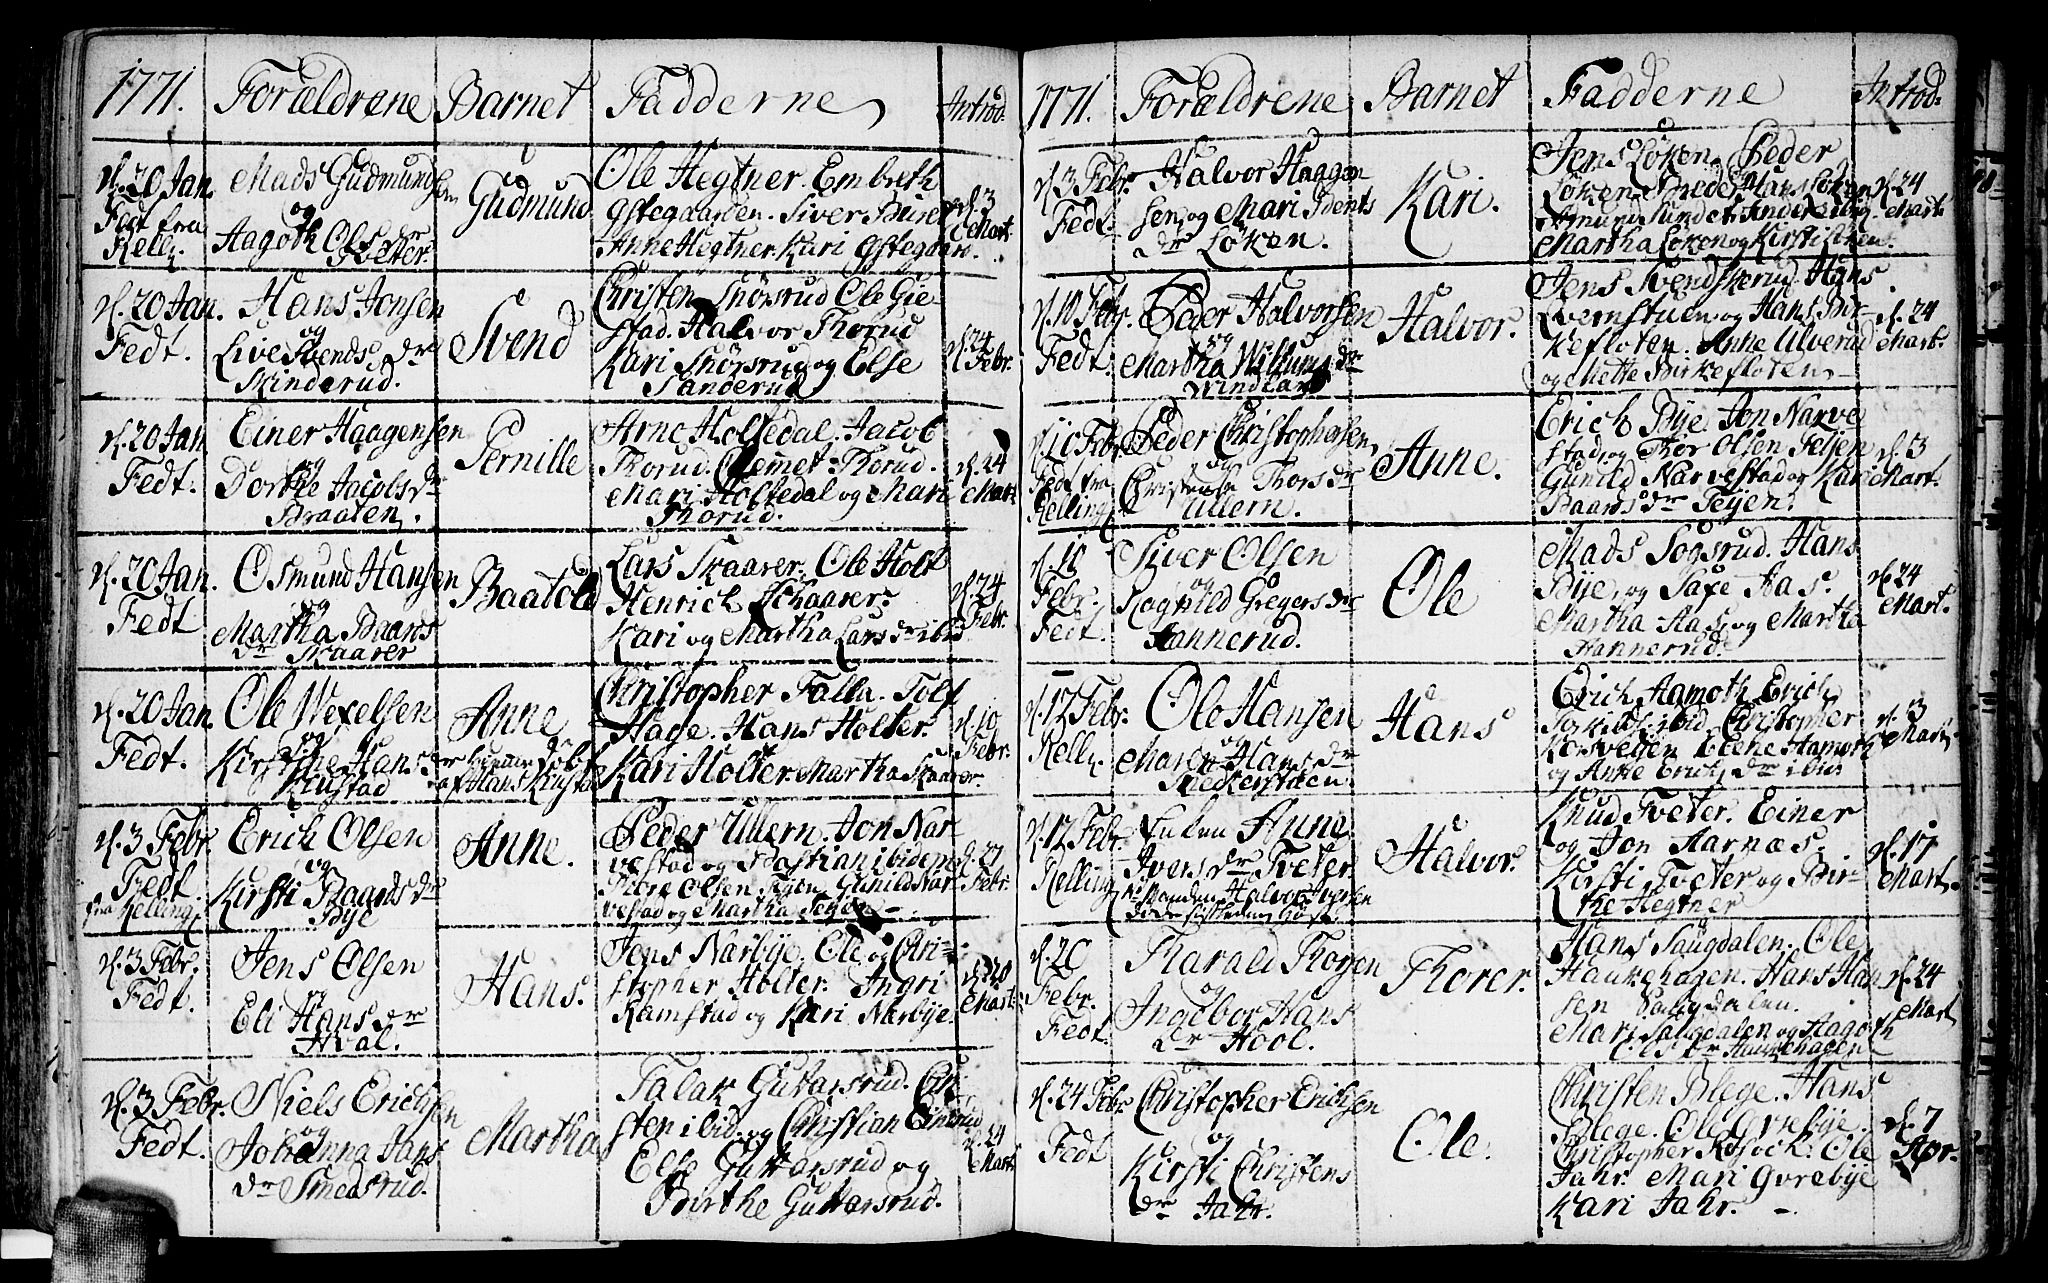 1771. Forældrene Barnet Fadderne Introd.
d. 20 Jan.
Fedt fra
Kelly
Mads Gudmundsen
og
Aagoth Ols dr
Tveter.
Gudmund
Ole Hegtner. Embreth
Østegaarden. Siver Burer
Anne Hegtner. Kari Østegaard.
d. 3
Mart.
d. 20 Jan.
Fedt.
Hans Jonsen
og
Live Svends dr
Skinderud.
Svend
Christen Snørsrud Ole Gie-
stad. Halvor Thorud
Kari Snørsrud og Else
Sanderud
d. 24
Febr.
d. 20 Jan
Fedt.
Einer Haagensen
og
Dorthe Jacobs dr
Braaten.
Pernille
Arne Holtedal. Jacob
Thorud. Clemet Thorud.
Mari Holtedal og Mari
Thorud.
d. 24
Mart.
d. 20 Jan.
Fedt
Osmund Hansen
og
Martha Baards
dr Skaarer
Baatold
Lars Skaarer. Ole Holt
Henrich Schaarer.
Kari og Martha Lars dr ibid
d. 24
Febr.
d. 20 Jan
Fedt.
Ole Wexelsen
og
Kirstine Hans dr
Krustad
Anne
af Hans Krustad
Christopher Falla. Tolf
Hage. Hans Holter.
Kari Holter. Martha Skaarer.
d. 10
Febr.
d. 3 Febr.
Fedt
fra Kelling
Erich Olsen
og
Kirsti Baards dr
Bye
Anne.
Peder Ullern. Jon Nar
vestad og Bastian ibidem
Thore Olsen Teyen Gunild Nar-
vestad og Martha Teyen
d. 27
Febr.
d. 3 Febr.
Fedt.
Jens Olsen
og
Eli Hans dr
Hval.
Hans.
Jens Narbye. Ole og Chri-
stopher Holter. Ingri
Ramstad og Kari Narbye.
d. 28
Mart.
d. 3 Febr.
Fedt.
Niels Erichsen
og
Johanna Jans
dr Smedsrud.
Martha
Talak Guttarsrud. Chri
sten ibid. og Christian Einerud
Else Guttarsrud og
Birthe Guttarsrud.
d. 24
Mart.
1771. Forældrene Barnet Fadderne Introd.
d. 3 Febr.
Fedt.
Halvor Haagen
sen og Mari Bents
dr Løken.
Kari.
Jens Løken. Peder
Løken Hans Løken
Amund Sundet
Martha Løken og Kirsti
d. 24
Mart.
d. 10 Febr.
Fedt.
Peder Halvorsen
og
Martha Willums dr
Halvor.
Jens Svendskerud Hans
Qvernstuen og Hans Bir-
kefloten. Anne Ulverud
og Mette Birkefloten
d. 24
Mart.
d. 10 Febr.
Fedt fra
Kelling
Peder Christophersen
og
Christense Thors dr
Ullern.
Anne.
Erich Bye Jon Narve
stad og Thor Olsen Teyen
Gunild Narvestad og Kari
Baards dr Teyen.
d. 3
Mart.
d. 10
Febr.
Fedt.
Siver Olsen
og
Ragnild Gregers dr
Hannerud.
Ole
Mads Sogsrud. Hans
Bye, og Saxe Aas.
Martha Aas, og Martha
Hannerud.
d. 24
Mart.
d. 12 Febr.
Kelly
Ole Hansen
og
Maren Hans dr
Hans
Erich Aamoth Erich
ibid Christopher
Korsvegen Lene Aamoth
og Anne Erichs dr ibid
d. 3
Mart.
d. 12 Febr.
Kelling
Enken Anne
Ivers dr Tveter.
Manden Halvor Iversen
Halvor.
Knud Tveter. Einer
og Jon Aarnæs.
Kirsti Tveter og Bir-
the Hegtner
d. 17
Mart.
d. 20
Febr.
Fedt.
Harald Thorsen
og
Ingebor Hans
dr Hool.
Thorer.
Hans Saugdalen. Ole
Haukehagen. Hans Han
sen Saugdalen.
Mari Saugdalen og Aagoth
Ols dr Haukehagen
d. 24
Mart
d. 24 Febr
Fedt
Christopher Erichsen
og
Kirsti Christens
dr Jahr.
Ole.
Christen Blege. Hans
Blege. Ole Gvrebye.
Christopher Ole
Jahr. Mari Gvrebye
Kari Jahr.
d. 7
Apr.